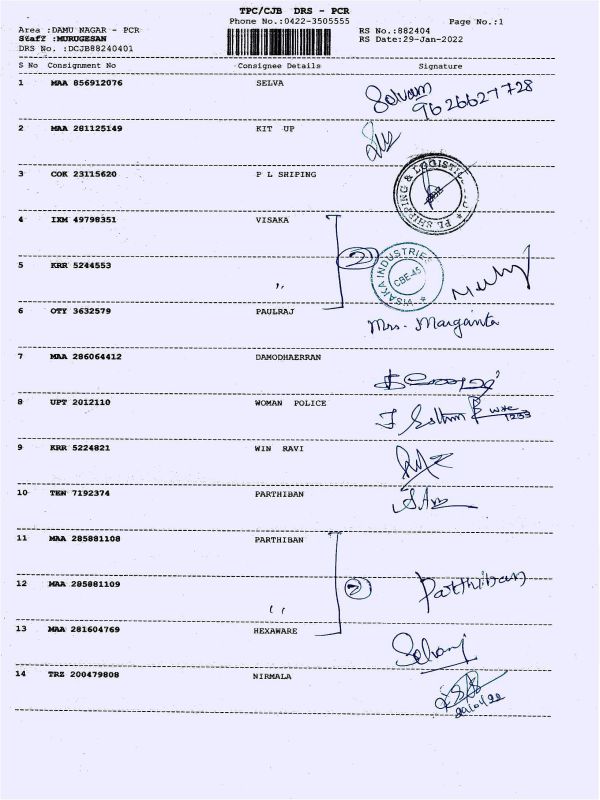 TPC/CJB DRS - PCR
Phone No.:0422-3505555 Page No.:1
Area :DAMU NAGAR - PCR RS No.:882404
Staff :MURUGESAN RS Date:29-Jan-2022
DRS No. :DCJB88240401
S No Consignment No Consignee Details Signature
1 MAA 856912076 SELVA Selvam
9626627728
2 MAA 281125149 KIT UP
3 COK 23115620 P L SHIPING PL SHIPPING & LOGISTIC
4 IXM 49798351 VISAKA
2 VISAKA INDUSTRIES CBE-45
5 KRR 5244553 ,,
6 OTY 3632579 PAULRAJ Mrs. Marganta
7 MAA 286064412 DAMODHAERRAN
8 UPT 2012110 WOMAN POLICE
1233
9 KRR 5224821 WIN RAVI
10 TEN 7192374 PARTHIBAN
11 MAA 285881108 PARTHIBAN
12 MAA 285881109 ,, 2 Parthiban
13 MAA 281604769 HEXAWARE Selvaraj
14 TRZ 200479808 NIRMALA